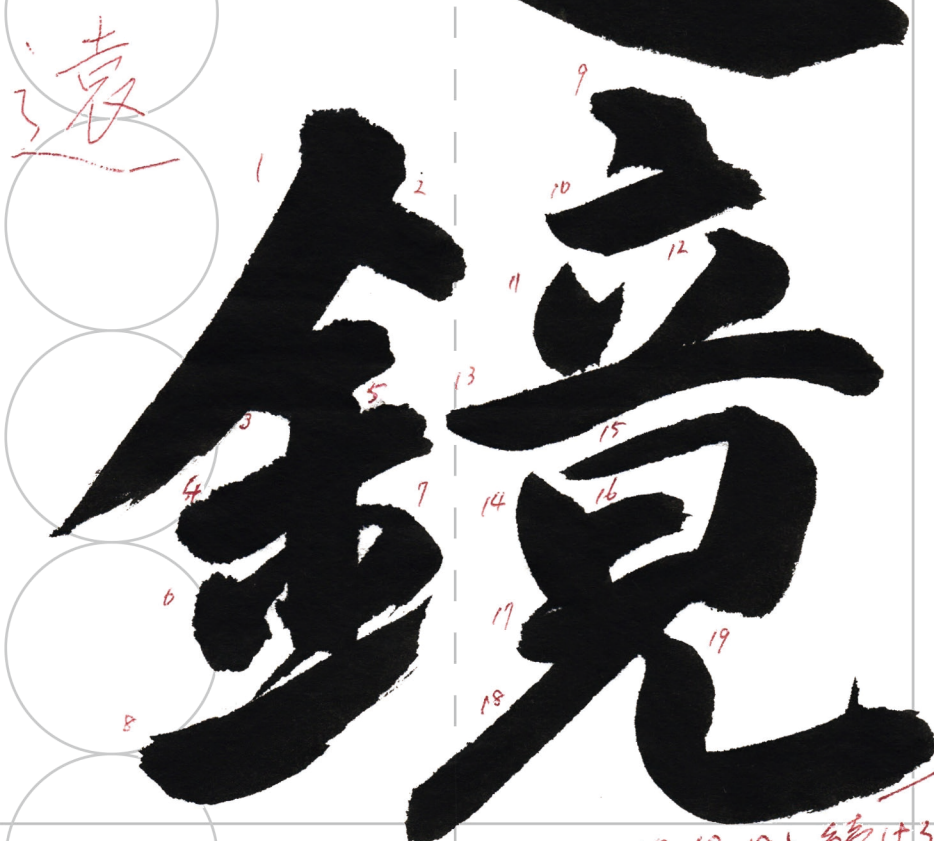 遠
鏡
1
2
3
4
5
6
7
8
9
10
11
12
13
14
15
16
17
18
19